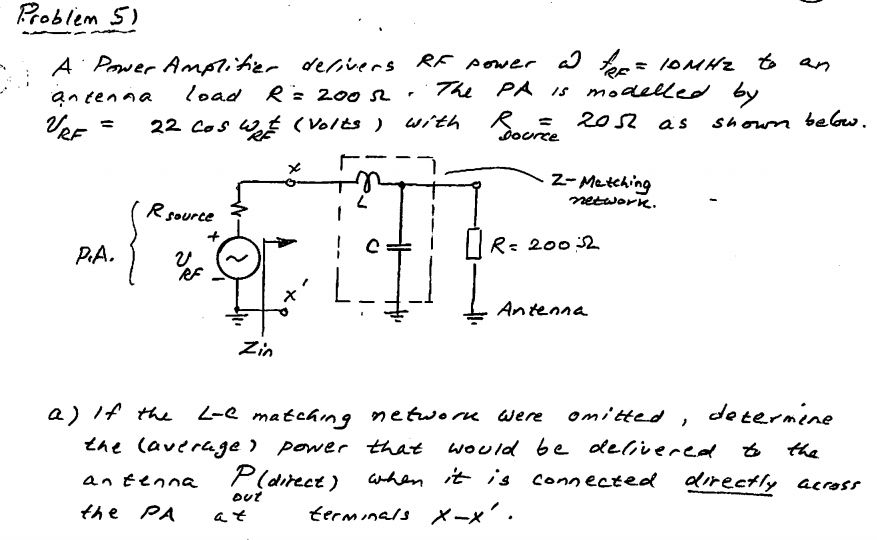 Problem 5)
A Power Amplifier delivers RF power @ fRF = 10MHz to an
antenna load R = 200 Ω. The PA is modelled by
VRF = 22 cos ωRF t (Volts) with Rsource = 20Ω as shown below.
x
L
Z-Matching
network.
Rsource
+
P.A.
VRF
-
C
R = 200Ω
x'
Antenna
Zin
a) If the L-C matching network were omitted, determine
the (average) power that would be delivered to the
antenna Pout(direct) when it is connected directly across
the PA at terminals x-x'.